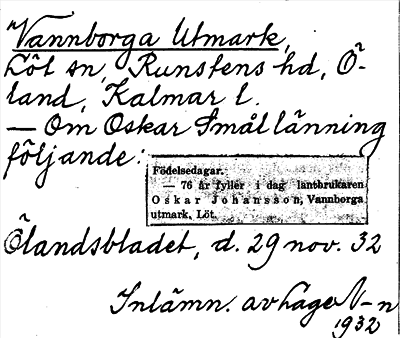 Vannborga Utmark,
Löt sn, Runstens hd, Ö-
land, Kalmar l.
— Om Oskar Smållänning
följande:
Födelsedagar.
— 76 år fyller i dag lantbrukaren
Oskar Johansson, Vannborga
utmark, Löt.
Ölandsbladet, d. 29 nov. 32
Inlämn. av Lage N-n
1932